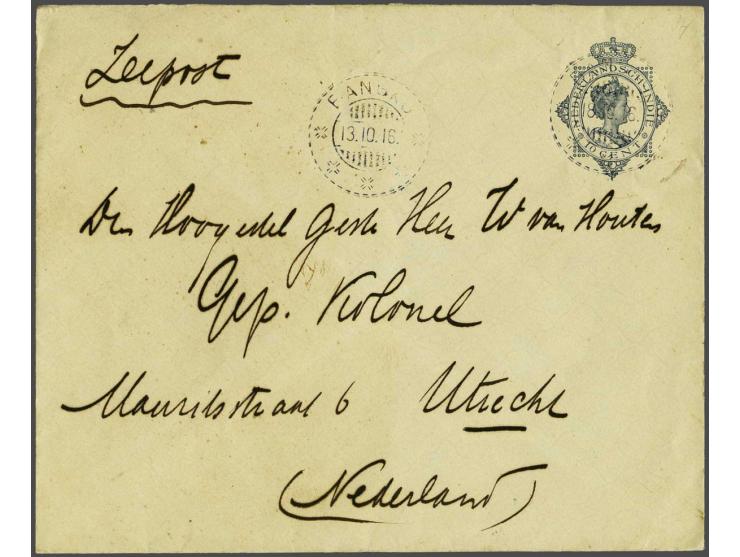 Zeepost
NEDERLANDSCH-INDIË
10 CENT
13.10.16.
Den Hoogedel Gestr Heer W van Houten
Gep. Kolonel
Mauritsstraat 6 Utrecht
(Nederland)